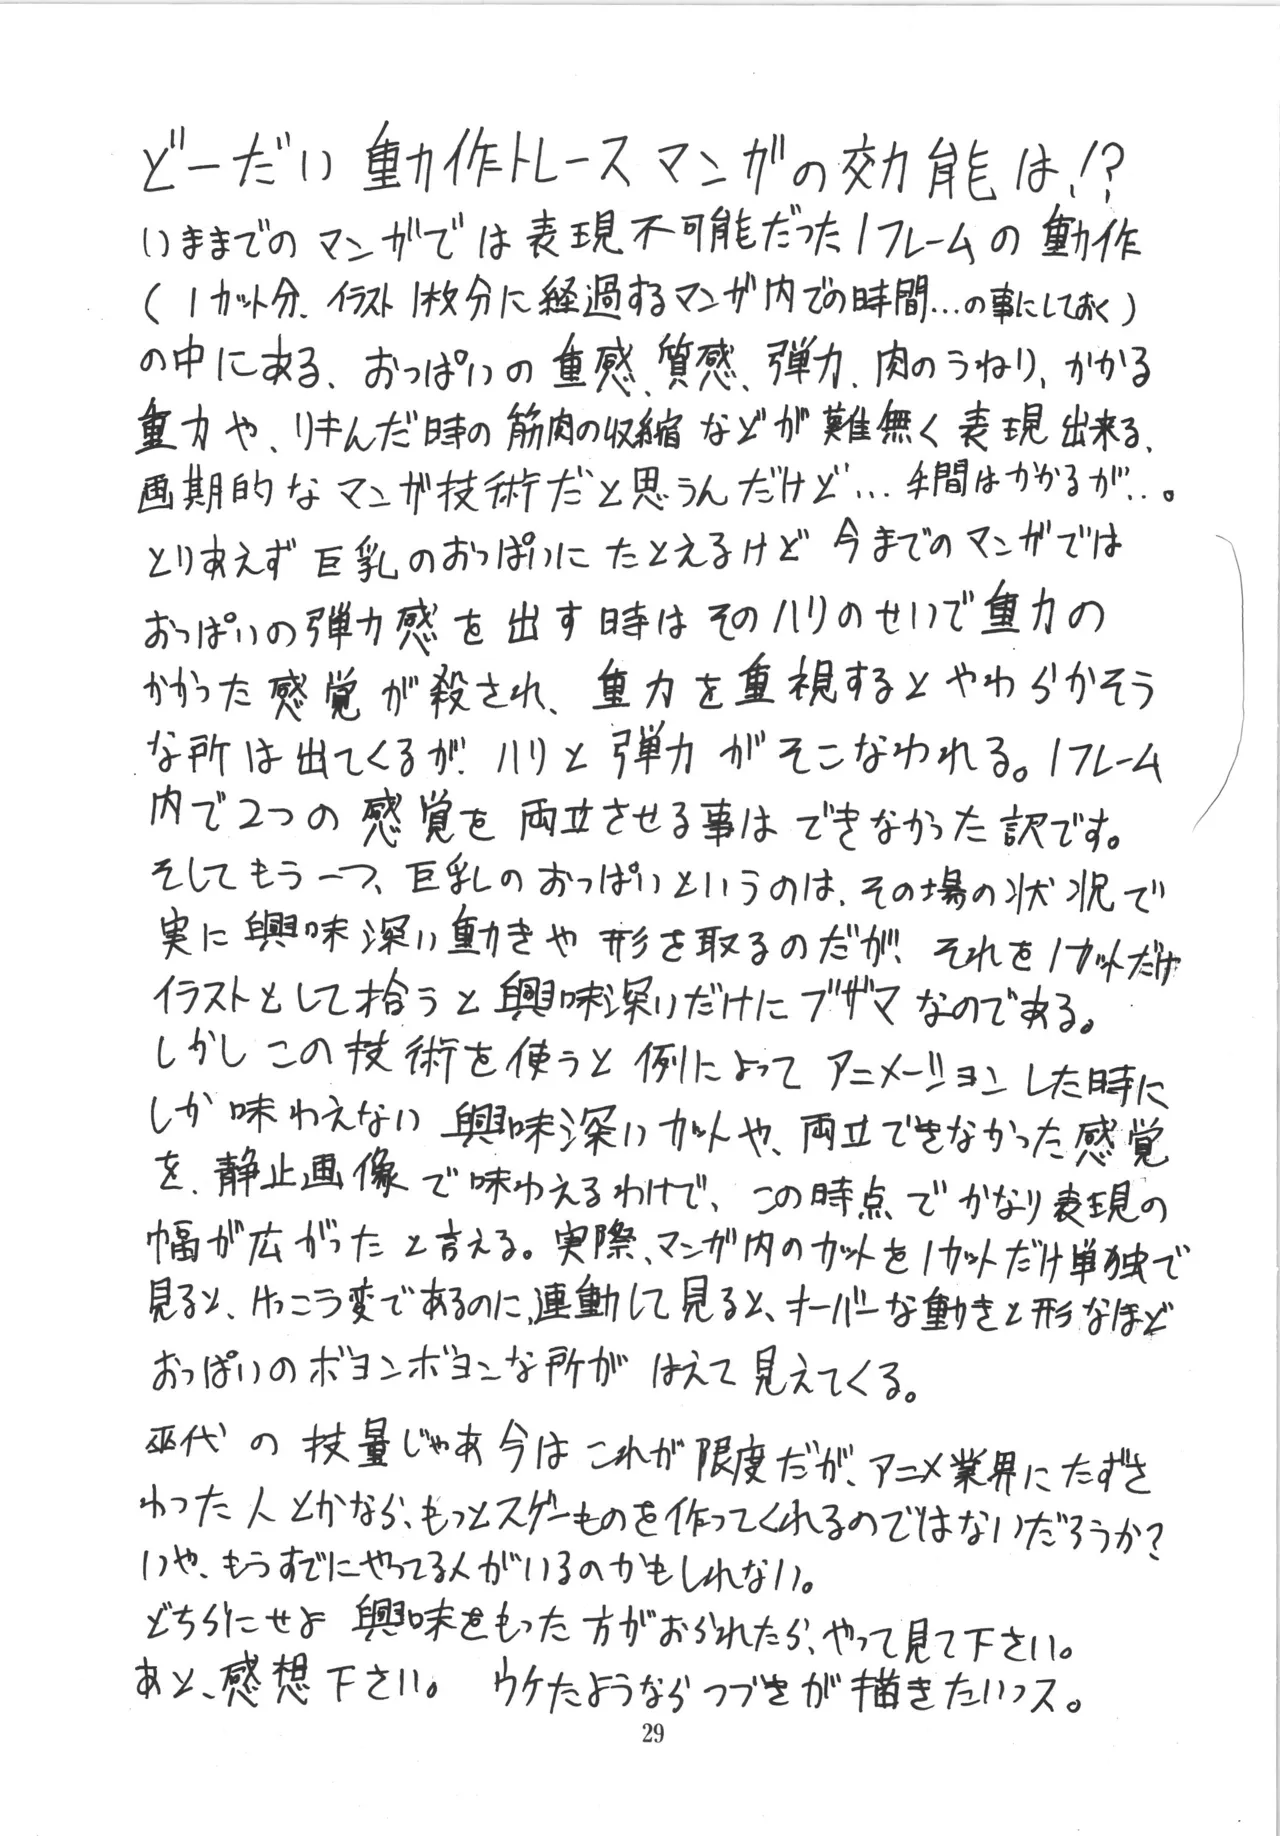 どーだい 動作トレースマンガの効能は!?
いままでのマンガでは表現不可能だった1フレームの動作
(1カット分、イラスト1枚分に経過するマンガ内での時間…の事にしておく)
の中にある、おっぱいの重感、質感、弾力、肉のうねり、かかる
重力や、リキんだ時の筋肉の収縮などが難無く表現出来る、
画期的なマンガ技術だと思うんだけど…手間はかかるが…。
とりあえず巨乳のおっぱいにたとえるけど今までのマンガでは
おっぱいの弾力感を出す時はそのハリのせいで重力の
かかった感覚が殺され、重力を重視するとやわらかそう
な所は出てくるが、ハリと弾力がそこなわれる。1フレーム
内で2つの感覚を両立させる事はできなかった訳です。
そしてもう一つ、巨乳のおっぱいというのは、その場の状況で
実に興味深い動きや形を取るのだが、それを1カットだけ
イラストとして拾うと興味深いだけにブザマなのである。
しかしこの技術を使うと例によってアニメーションした時に
しか味わえない興味深いカットや、両立できなかった感覚
を、静止画像で味わえるわけで、この時点でかなり表現の
幅が広がったと言える。実際、マンガ内のカットを1カットだけ単独で
見ると、けっこう変であるのに、連動して見ると、オーバーな動きと形なほど
おっぱいのボヨンボヨンな所がはえて見えてくる。
巫代の技量じゃあ今はこれが限度だが、アニメ業界にたずさ
わった人とかなら、もっとスゲーものを作ってくれるのではないだろうか?
いや、もうすでにやってる人がいるのかもしれない。
どちらにせよ興味をもった方がおられたら、やって見て下さい。
あと、感想下さい。 ウケたようならつづきが描きたいっス。
29